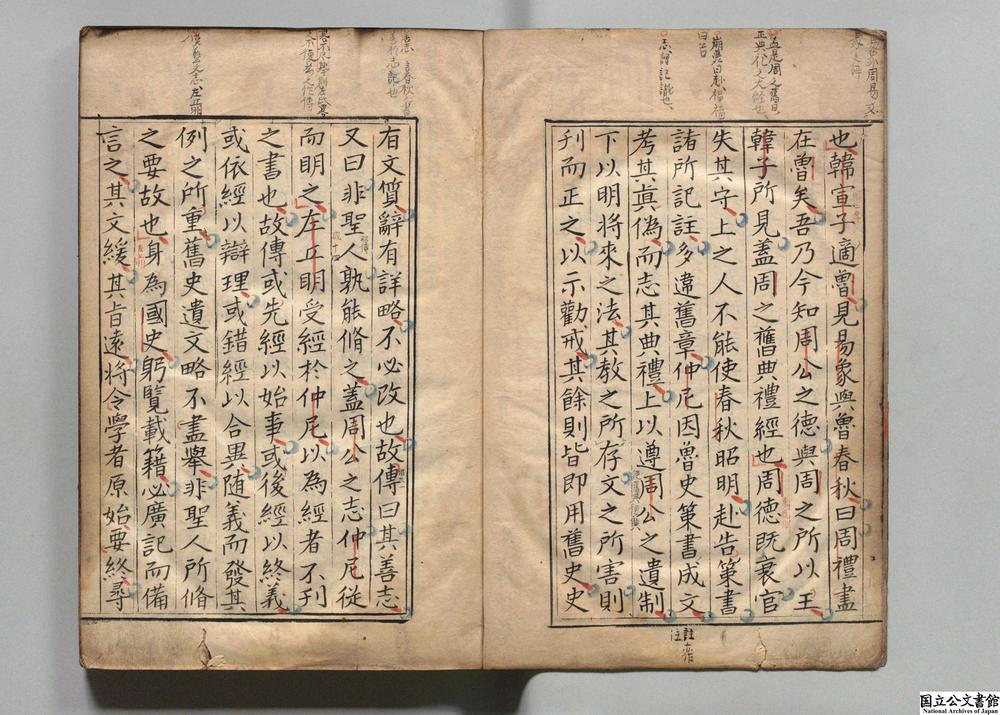 也韓宣子適魯見易象與魯春秋曰周禮盡
在魯矣吾乃今知周公之德與周之所以王
韓子所見蓋周之舊典禮經也周德既衰官
失其守上之人不能使春秋昭明赴告策書
諸所記註多違舊章仲尼因魯史策書成文
考其真偽而志其典禮上以遵周公之遺制
下以明將來之法其教之所存文之所害則
刊而正之以示勸戒其餘則皆即用舊史史
有文質辭有詳略不必改也故傳曰其善志
又曰非聖人孰能脩之蓋周公之志仲尼從
而明之左丘明受經於仲尼以為經者不刊
之書也故傳或先經以始事或後經以終義
或依經以辯理或錯經以合異随義而發其
例之所重舊史遺文略不盡舉非聖人所脩
之要故也身為國史躬覽載籍必廣記而備
言之其文緩其旨遠將令學者原始要終尋
国立公文書館
National Archives of Japan